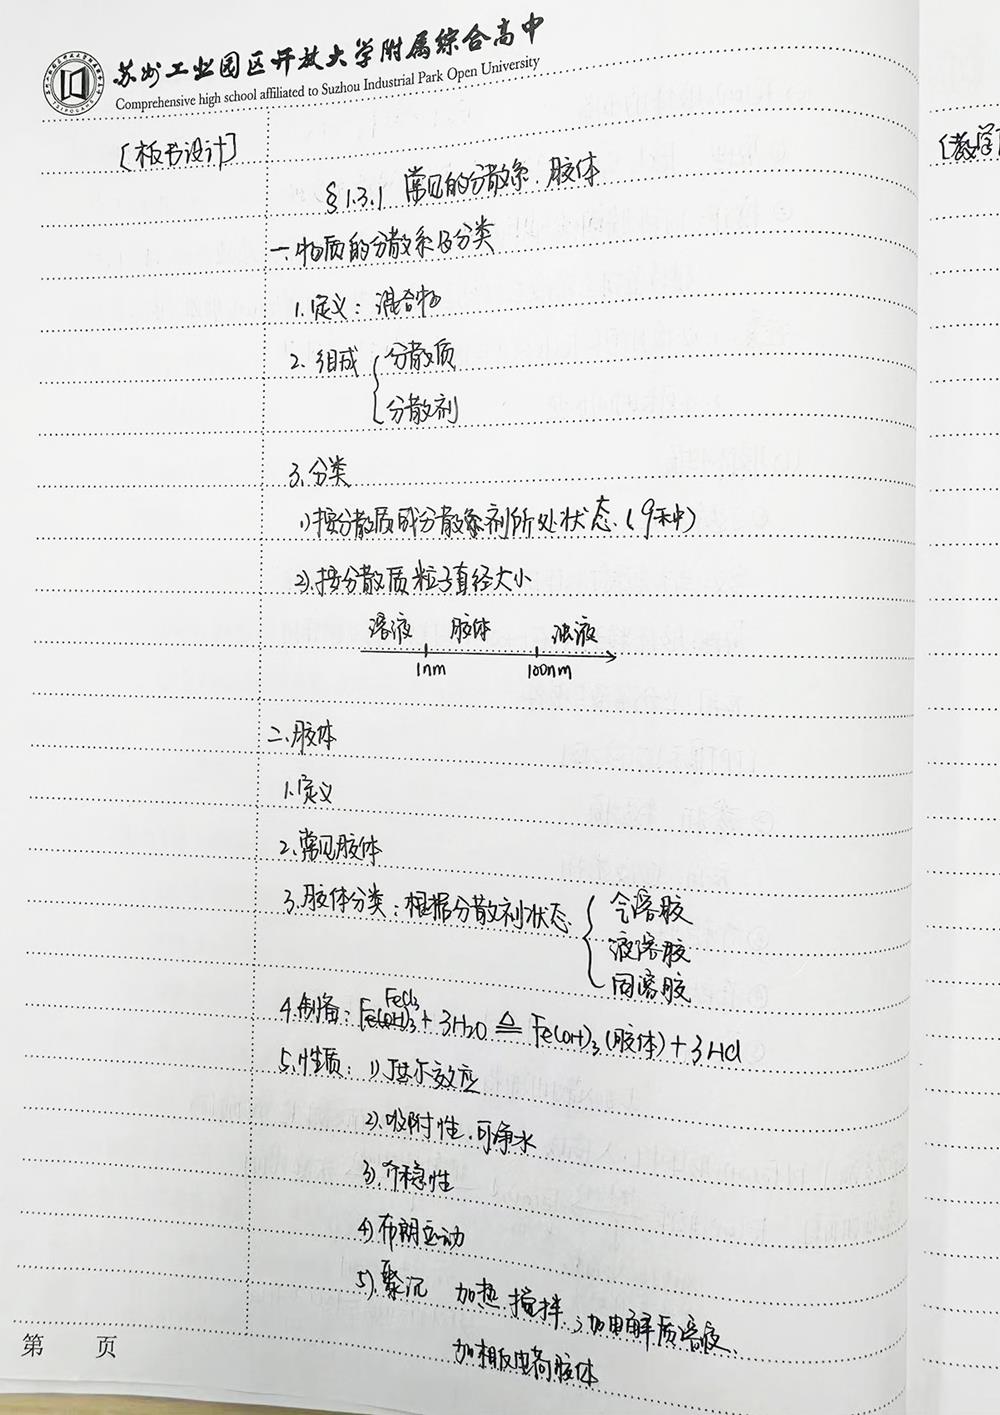 苏州工业园区开放大学附属综合高中
Comprehensive high school affiliated to Suzhou Industrial Park Open University
[板书设计]
[教学
§1.3.1 常见的分散系 胶体
一.物质的分散系及分类
1.定义：混合物
2.组成 分散质
分散剂
3.分类
1)按分散质或分散剂所处状态.(9种)
2).按分散质粒子直径大小
溶液 胶体 浊液
1nm 100nm
二.胶体
1.定义
2.常见胶体
3.胶体分类：根据分散剂状态 气溶胶
液溶胶
固溶胶
4.制备：FeCl3 + 3H2O △ Fe(OH)3 (胶体) + 3HCl
5.性质：1)丁达尔效应
2).吸附性.可净水
3).介稳性
4)布朗运动
5).聚沉 加热.搅拌.加电解质溶液.
加相反电荷胶体
第 页